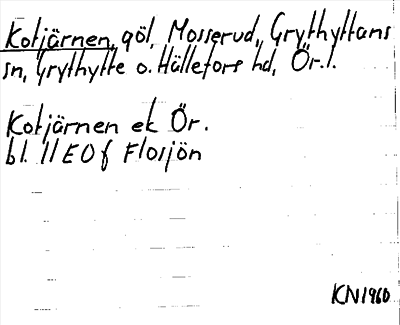 Kotjärnen, göl, Mosserud, Grythyttans
sn, Grythytte o. Hällefors hd, Ör. l.
Kotjärnen ek Ör.
bl. 11 E 0 f Flosjön
KN1960